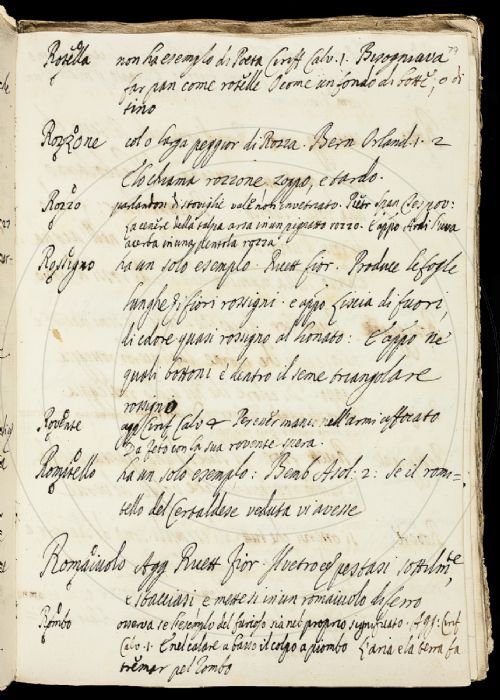 79
Rosella non ha esemplo di Poeta Ciriff Calv. 1. Bisogniava
far pan come roselle O come un fondo di botte, o di
tino
Rozzone col o larga peggior di Rozza. Bern Orland. 1. 2
E lo chiama rozzone, zoppo, e tardo.
Rozzo parlandosi di stoviglie vale non invetriato. Pietr
La cenere della talpa arsa in un pignatto rozzo. E appo
acerba in una pentola rozza
Rossigno ha un solo esemplo. Ruett fior. Produce le foglie
lunghe, i fiori rossigni. e appo Liscia di fuori,
di colore quasi rossigno al lionato: E appo ne
quali bottoni è dentro il seme triangolare
rossigno
Rovente agg Cirif Calv 2 Percuter mani nell'armi affocato
Da Feto con la sua rovente spera.
Romitello ha un solo esemplo: Bemb Asol: 2: Se il romi-
tello del Certaldese veduta vi avesse
Romaiuolo Agg Ruett fior. Il vetro pestasi sottilmte
e stacciasi e mettesi in un romaiuolo di ferro
Rombo osserva se l'esemplo del furioso sia nel proprio significato. Agg: Cirif
Calv. 1. E nel calare a basso il colpo a piombo L'aria e la terra fa
tremar pel rombo